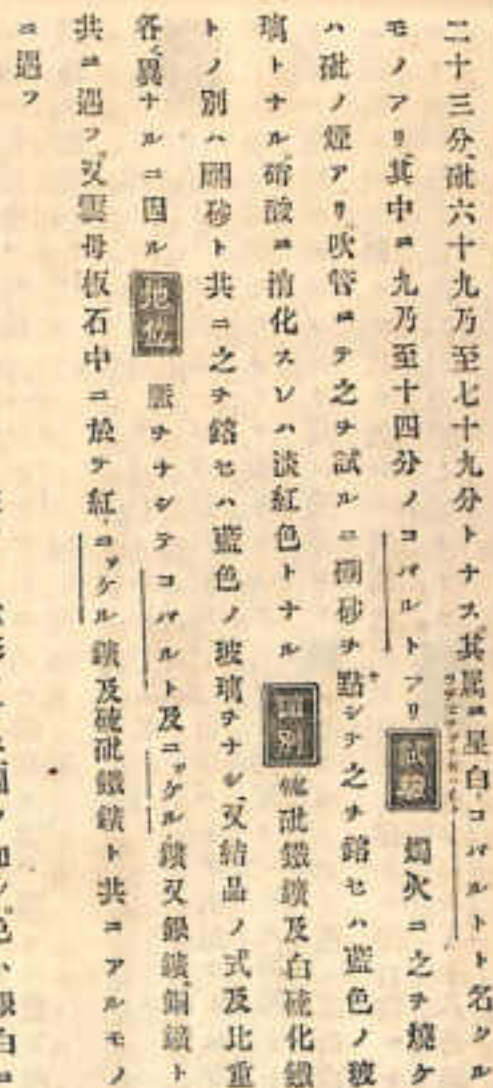 二十三分、砒六十九乃至七十九分トナス、其属ニ星白コバルトト名クル
モノアリ、其中ニ九乃至十四分ノコバルトアリ 試験 燭火ニ之ヲ燒ケ
ハ砒ノ煙アリ、吹管ニテ之ヲ試ルニ硼砂ヲ點シテ之ヲ鎔セハ藍色ノ玻
璃トナル、硝酸ニ消化スレハ淡紅色トナル 別 硫砒鐵鑛及白硫化鐵
トノ別ハ硼砂ト共ニ之ヲ鎔セハ藍色ノ玻璃ヲナシ、又結晶ノ式及比重
各異ナルニ因ル 地位 脈ヲナシテコバルト及ニッケル鑛又銀鑛、銅鑛ト
共ニ遇フ、又雲母板石中ニ於テ紅ニッケル鑛及硫砒鐵鑛ト共ニアルモノ
ニ遇フ